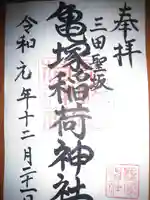 奉拝
三田聖坂
亀塚稲荷神社
令和元年十二月二十一日